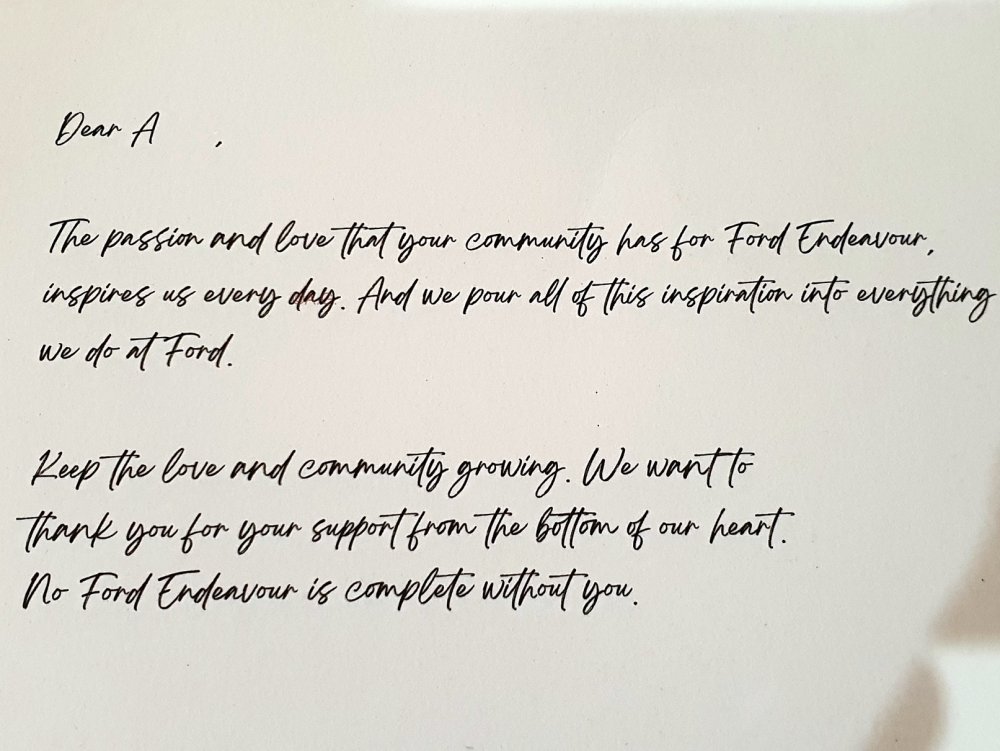 Dear A ,
The passion and love that your community has for Ford Endeavour,
inspires us every day. And we pour all of this inspiration into everything
we do at Ford.
Keep the love and community growing. We want to
thank you for your support from the bottom of our heart.
No Ford Endeavour is complete without you.